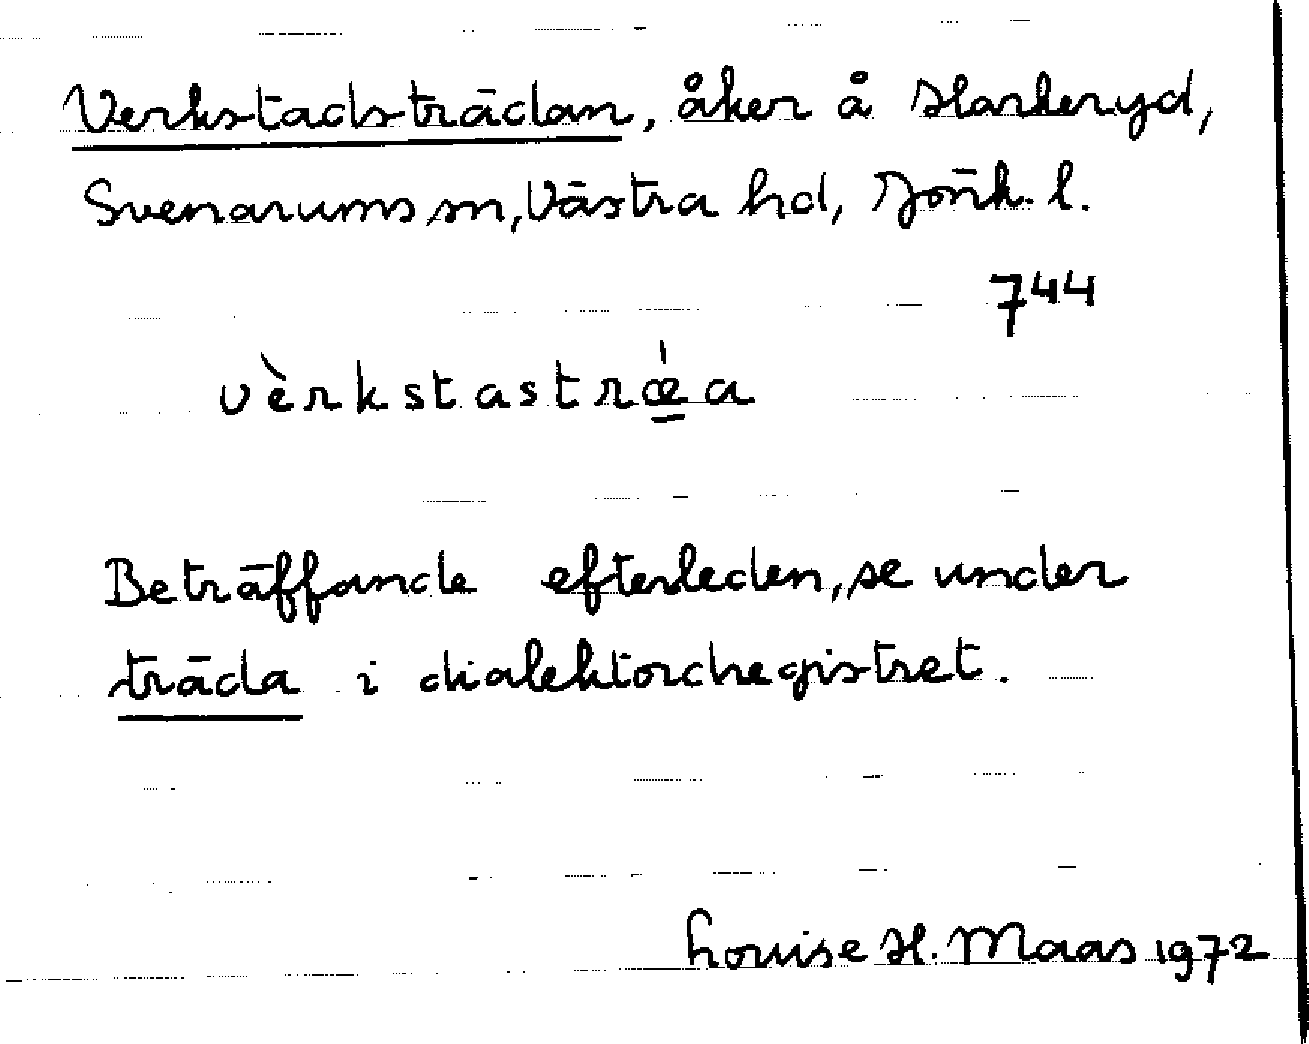 Verkstadsträdan, åker å Harkeryd,
Svenarums sn, Västra hd, Jönk. l.
744
vèrkstastrǽ̠a
Beträffande efterleden, se under
träda i dialektordregistret.
Louise H. Maas 1972